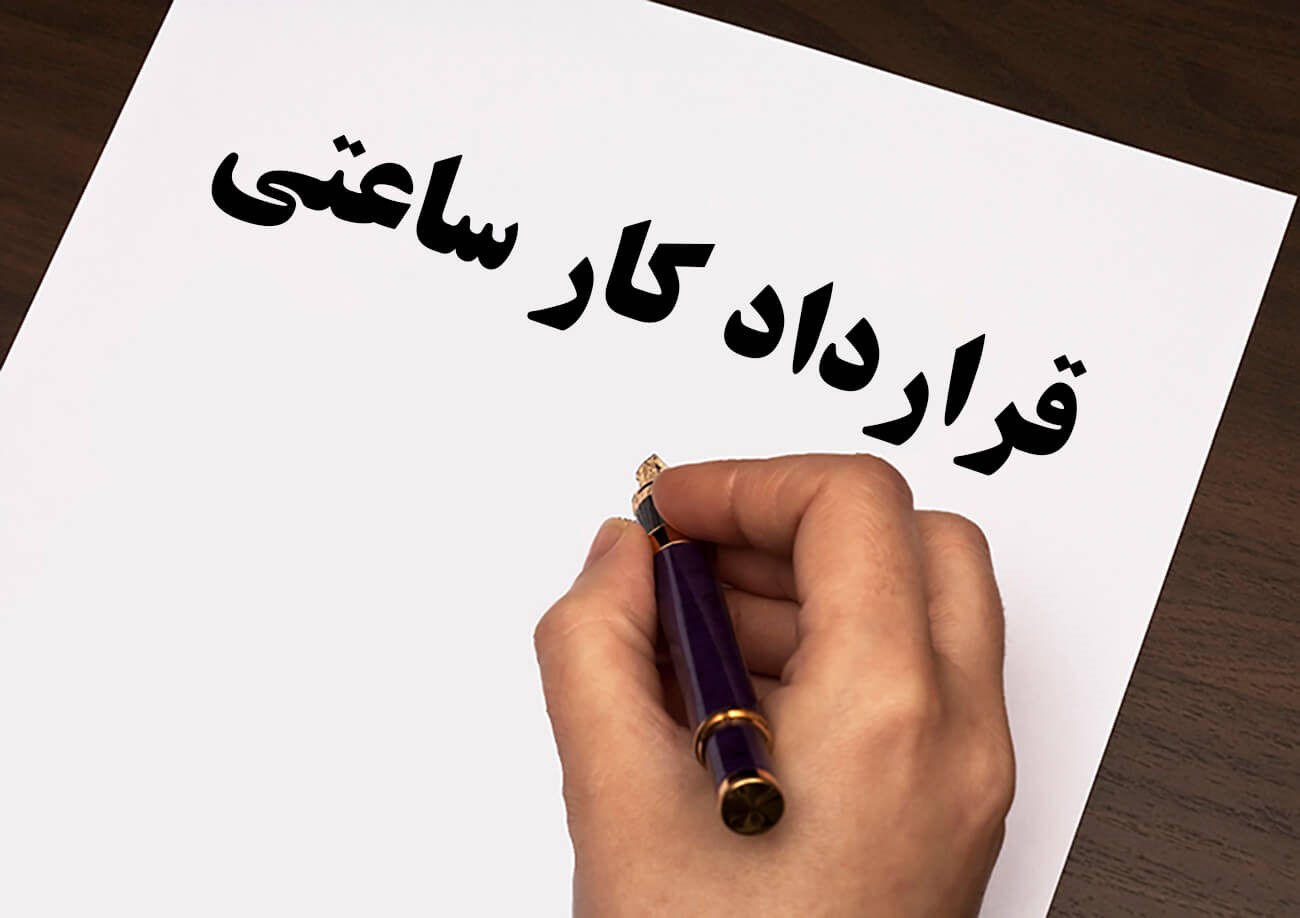 قرارداد کار ساعتی